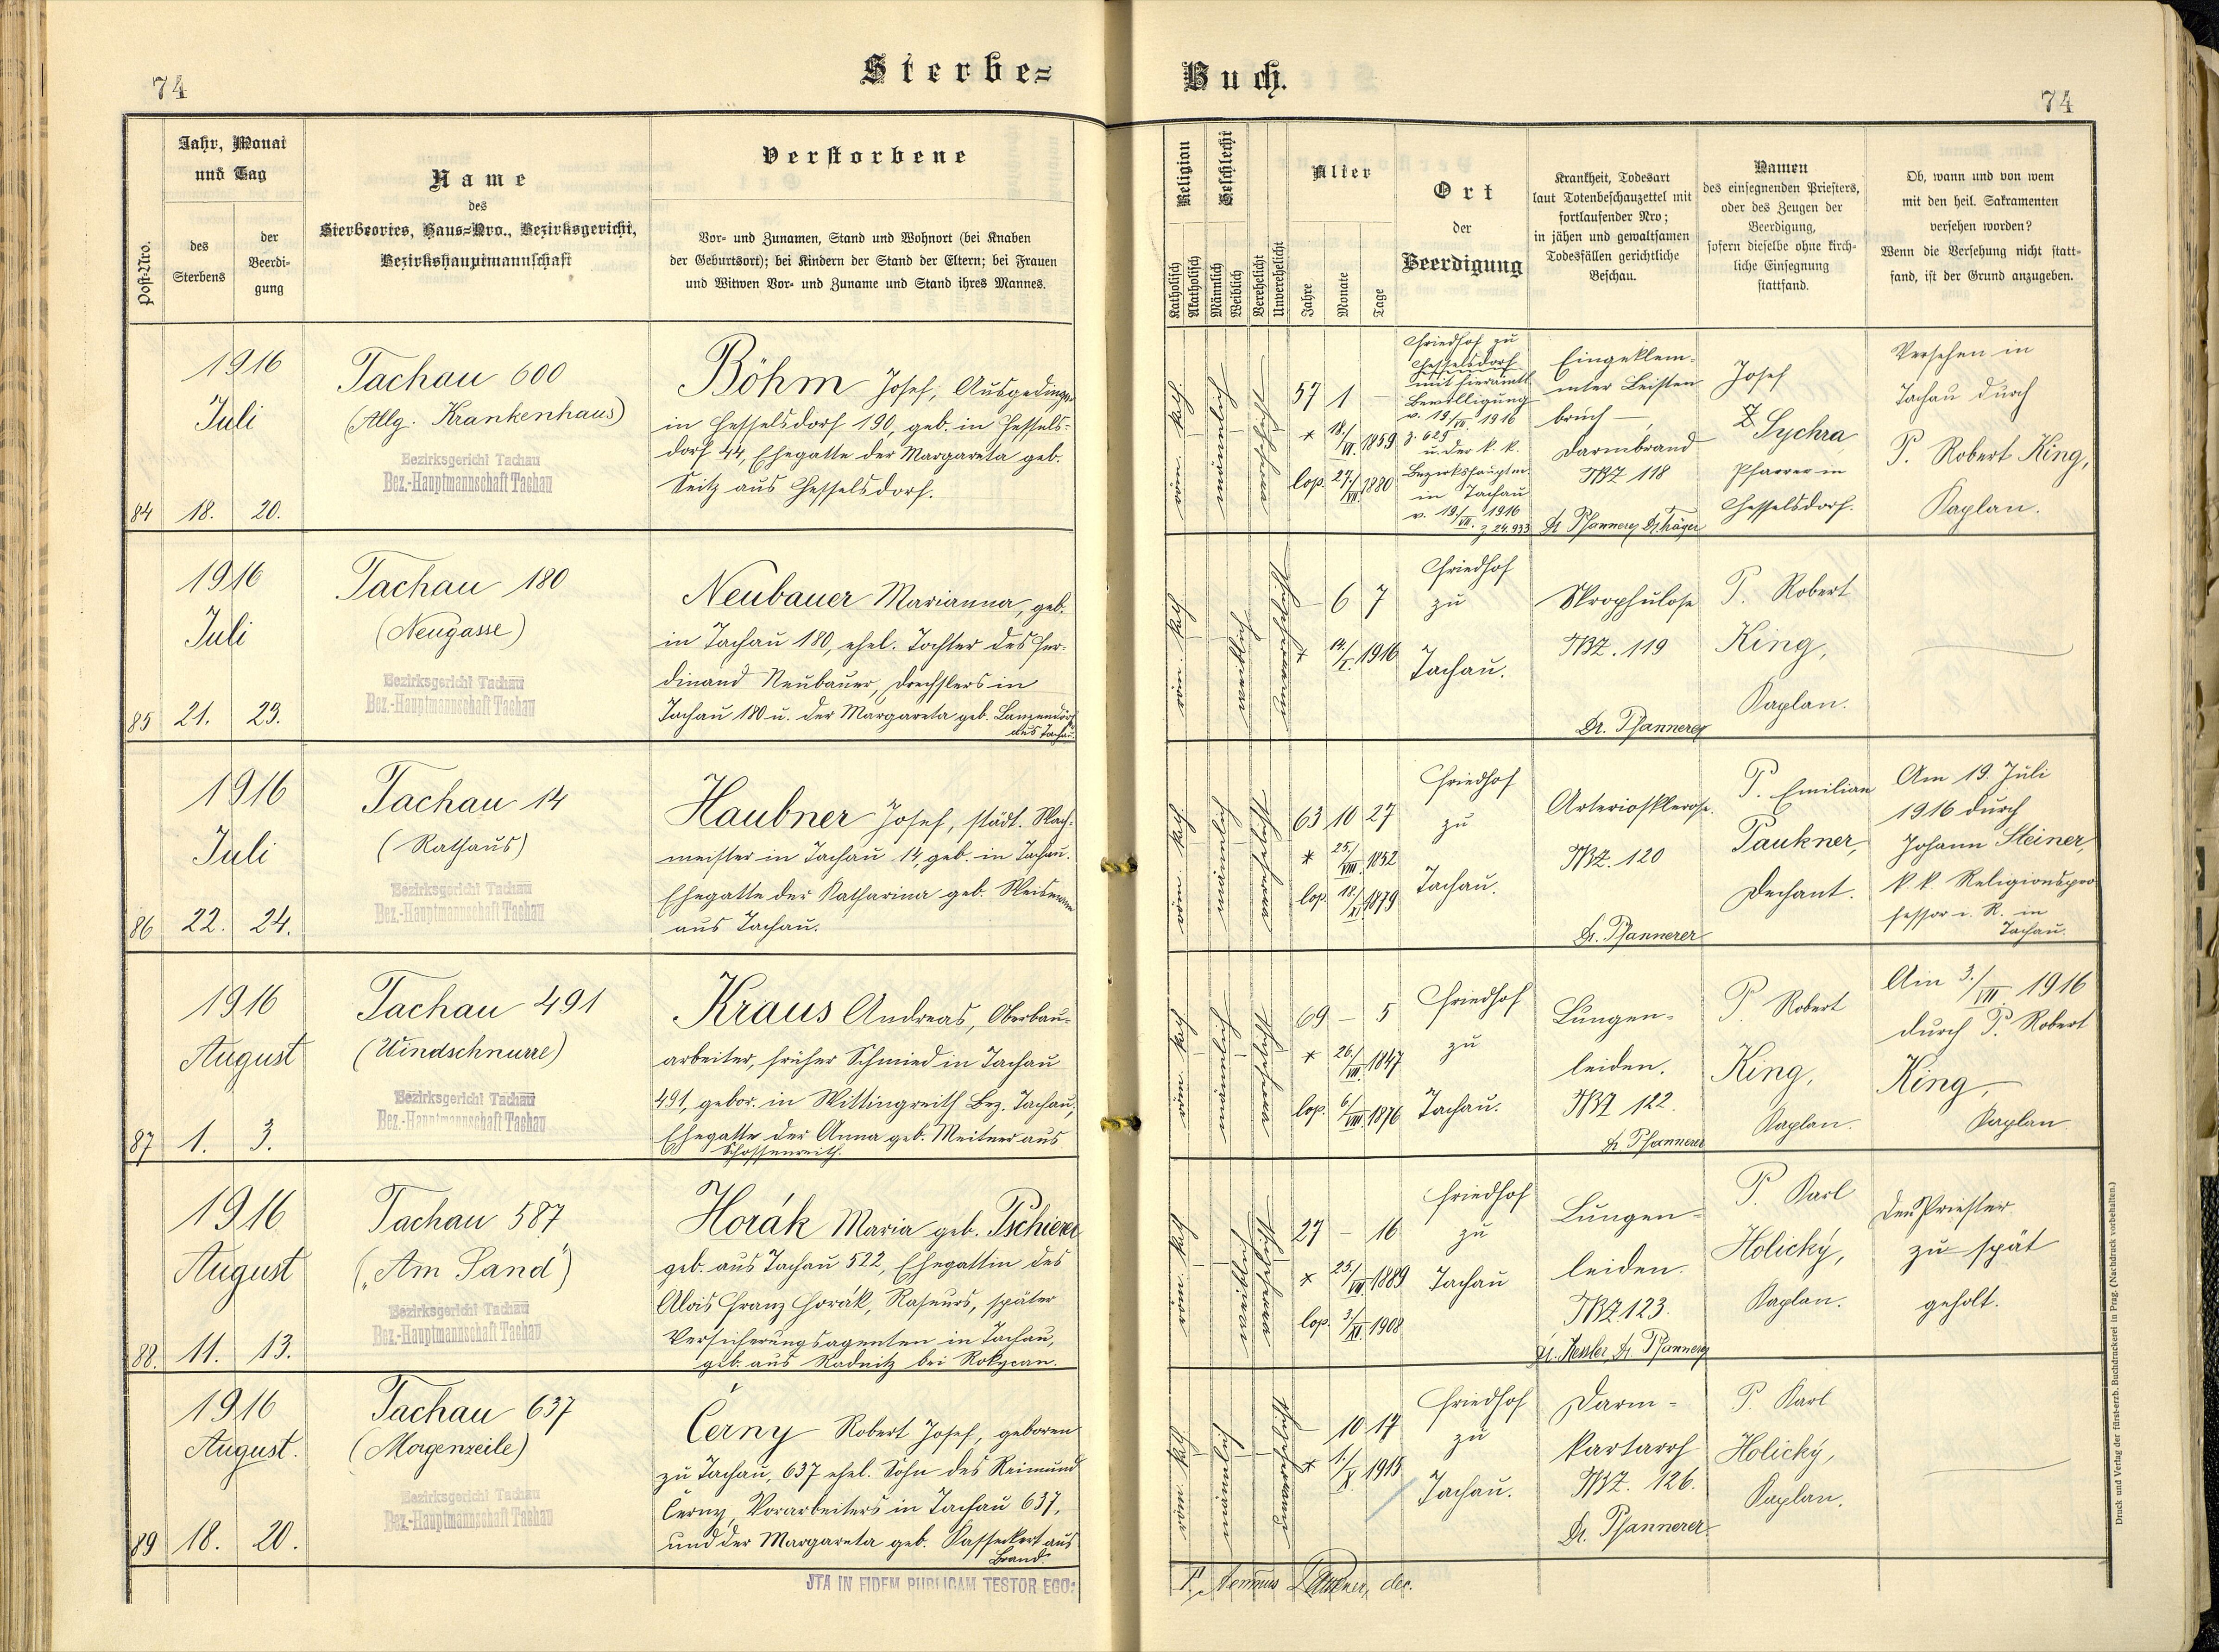 74
Sterbe=
Post-Nro.
Jahr, Monat
und Tag
des
Sterbens
der
Beerdi-
gung
Name
des
Sterbeortes, Haus=Nro., Bezirksgericht,
Bezirkshauptmannschaft
Verstorbene
Vor- und Zunamen, Stand und Wohnort (bei Knaben
der Geburtsort); bei Kindern der Stand der Eltern; bei Frauen
und Witwen Vor- und Zuname und Stand ihres Mannes.
1916
Juli
84 18. 20.
Tachau 600
(Allg. Krankenhaus)
Bezirksgericht Tachau
Bez.-Hauptmannschaft Tachau
Böhm Josef, Ausgedinger
in Hesselsdorf 190, geb. in Hessels-
dorf 44, Ehegatte der Margareta geb.
Seitz aus Hesselsdorf.
1916
Juli
85 21. 23.
Tachau 180
(Neugasse)
Bezirksgericht Tachau
Bez.-Hauptmannschaft Tachau
Neubauer Marianna, geb.
in Tachau 180, ehel. Tochter des Fer-
dinand Neubauer, Drechslers in
Tachau 180 u. der Margareta geb. Lanzendörf
aus Tachau.
1916
Juli
86 22. 24.
Tachau 14
(Rathaus)
Bezirksgericht Tachau
Bez.-Hauptmannschaft Tachau
Haubner Josef, städt. Wach-
meister in Tachau 14, geb. in Tachau.
Ehegatte der Katharina geb.
aus Tachau.
1916
August
87 1. 3.
Tachau 491
(Windschnurre)
Bezirksgericht Tachau
Bez.-Hauptmannschaft Tachau
Kraus Andreas, Oberbau-
arbeiter, früher Schmied in Tachau
491, gebor. in Wittingreith Bez. Tachau,
Ehegatte der Anna geb. Meitner aus
Schossenreith.
1916
August
88. 11. 13.
Tachau 587
("Am Sand")
Bezirksgericht Tachau
Bez.-Hauptmannschaft Tachau
Horák Maria geb. Tschierer
geb. aus Tachau 522, Ehegattin des
Alois Franz Horák, Raseurs, später
Versicherungsagenten in Tachau,
geb. aus Radnitz bei Rokycan.
1916
August.
89 18. 20.
Tachau 637
(Morgenzeile)
Bezirksgericht Tachau
Bez.-Hauptmannschaft Tachau
Černy Robert Josef, geboren
zu Tachau, 637 ehel. Sohn des Reimund
Černy, Vorarbeiters in Tachau 637,
und der Margareta geb. Kasseckert aus
Brand.
JTA IN FIDEM PUBLICAM TESTOR EGO:
Buch.
74
Religion
Katholisch
Akatholisch
Geschlecht
Männlich
Weiblich
Verehelicht
Unverehelicht
Alter
Jahre
Monate
Tage
Ort
der
Beerdigung
Krankheit, Todesart
laut Totenbeschauzettel mit
fortlaufender Nro;
in jähen und gewaltsamen
Todesfällen gerichtliche
Beschau.
Namen
des einsegnenden Priesters,
oder des Zeugen der
Beerdigung,
sofern dieselbe ohne kirch-
liche Einsegnung
stattfand.
Ob, wann und von wem
mit den heil. Sakramenten
versehen worden?
Wenn die Versehung nicht statt-
fand, ist der Grund anzugeben.
röm. kath.
männlich
verehelicht
57 1 —
* 18./VI. 1859
cop. 27./VII. 1880
Friedhof zu
Hesselsdorf
mit hieramtl.
Bewilligung
v. 19./VII. 1916
z. 625
u. der k. k.
Bezirkshauptm.
in Tachau
v. 19./VII. 1916
z. 24.933
Eingeklem-
mter Leisten
bruch —,
Darmbrand
TBZ 118
Dr Pfannerer
Josef
Sychra,
Pfarrer in
Hesselsdorf.
Versehen in
Tachau durch
P. Robert King,
Kaplan.
röm. kath.
weiblich
— 6 7
* 14./I. 1916
Friedhof
zu
Tachau.
Skrophulose
TBZ. 119
Dr. Pfannerer
P. Robert
King,
Kaplan.
röm. kath.
männlich
63 10 27
* 25./VIII. 1852
cop. 18./XI. 1879
Friedhof
zu
Tachau.
Arteriosklerose.
TBZ. 120
Dr. Pfannerer
P. Emilian
Paukner,
Dechant.
Am 19. Juli
1916 durch
Johann Steiner,
k. k. Religionspro-
fessor i. R. in
Tachau.
röm. kath.
männlich
69 — 5
* 26./VII. 1847
cop. 6./VIII. 1876
Friedhof
zu
Tachau.
Lungen-
leiden.
TBZ 122.
Dr Pfannerer
P. Robert
King,
Kaplan.
Am 3./VII. 1916
durch P. Robert
King,
Kaplan
röm. kath.
weiblich
27 — 16
* 25./VII. 1889
cop. 3./XI. 1908
Friedhof
zu
Tachau
Lungen-
leiden.
TBZ 123.
Dr. Kessler, Dr. Pfannerer
P. Karl
Holický,
Kaplan.
Den Priester
zu spät
geholt.
röm. kath.
männlich
10 17
* 1./X. 1915
Friedhof
zu
Tachau.
Darm-
kartarrh
TBZ. 126.
Dr. Pfannerer
P. Karl
Holický,
Kaplan.
Paukner, dec.
Druck und Verlag der fürst-erzb. Buchdruckerei in Prag. (Nachdruck vorbehalten.)